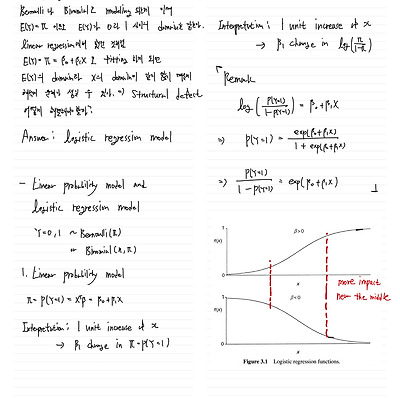 Bernoulli 나 Binomial 로 modeling 되어 있어
E(Y)=π 이므로 E(Y)가 0과 1 사이의 domain을 갖는다.
linear regression에서 했던 것처럼
E(Y)=π=β₀+β₁X 로 fitting 하게 되면
E(Y)의 domain과 X의 domain이 같지 않기 때문에
문제가 생길 수 있다. ⇒ Structural defect
어떻게 해결해야 할까?
Answer: logistic regression model
- Linear probability model and
logistic regression model
Y=0,1 ~ Bernoulli(π)
Binomial(n,π)
1. Linear probability model
π = P(Y=1) = Xᵀβ = β₀+β₁X
Interpretation: 1 unit increase of x
→ β₁ change in π=P(Y=1)
Interpretation: 1 unit increase of x
→ β₁ change in log(π/(1-π))
Remark
log(P(Y=1)/(1-P(Y=1))) = β₀+β₁X
⇒ P(Y=1) = exp(β₀+β₁X)/(1+exp(β₀+β₁X))
⇒ P(Y=1)/(1-P(Y=1)) = exp(β₀+β₁X)
1
β>0
0
x
1
β<0
0
x
more impact
near the middle
Figure 3.1 Logistic regression functions.